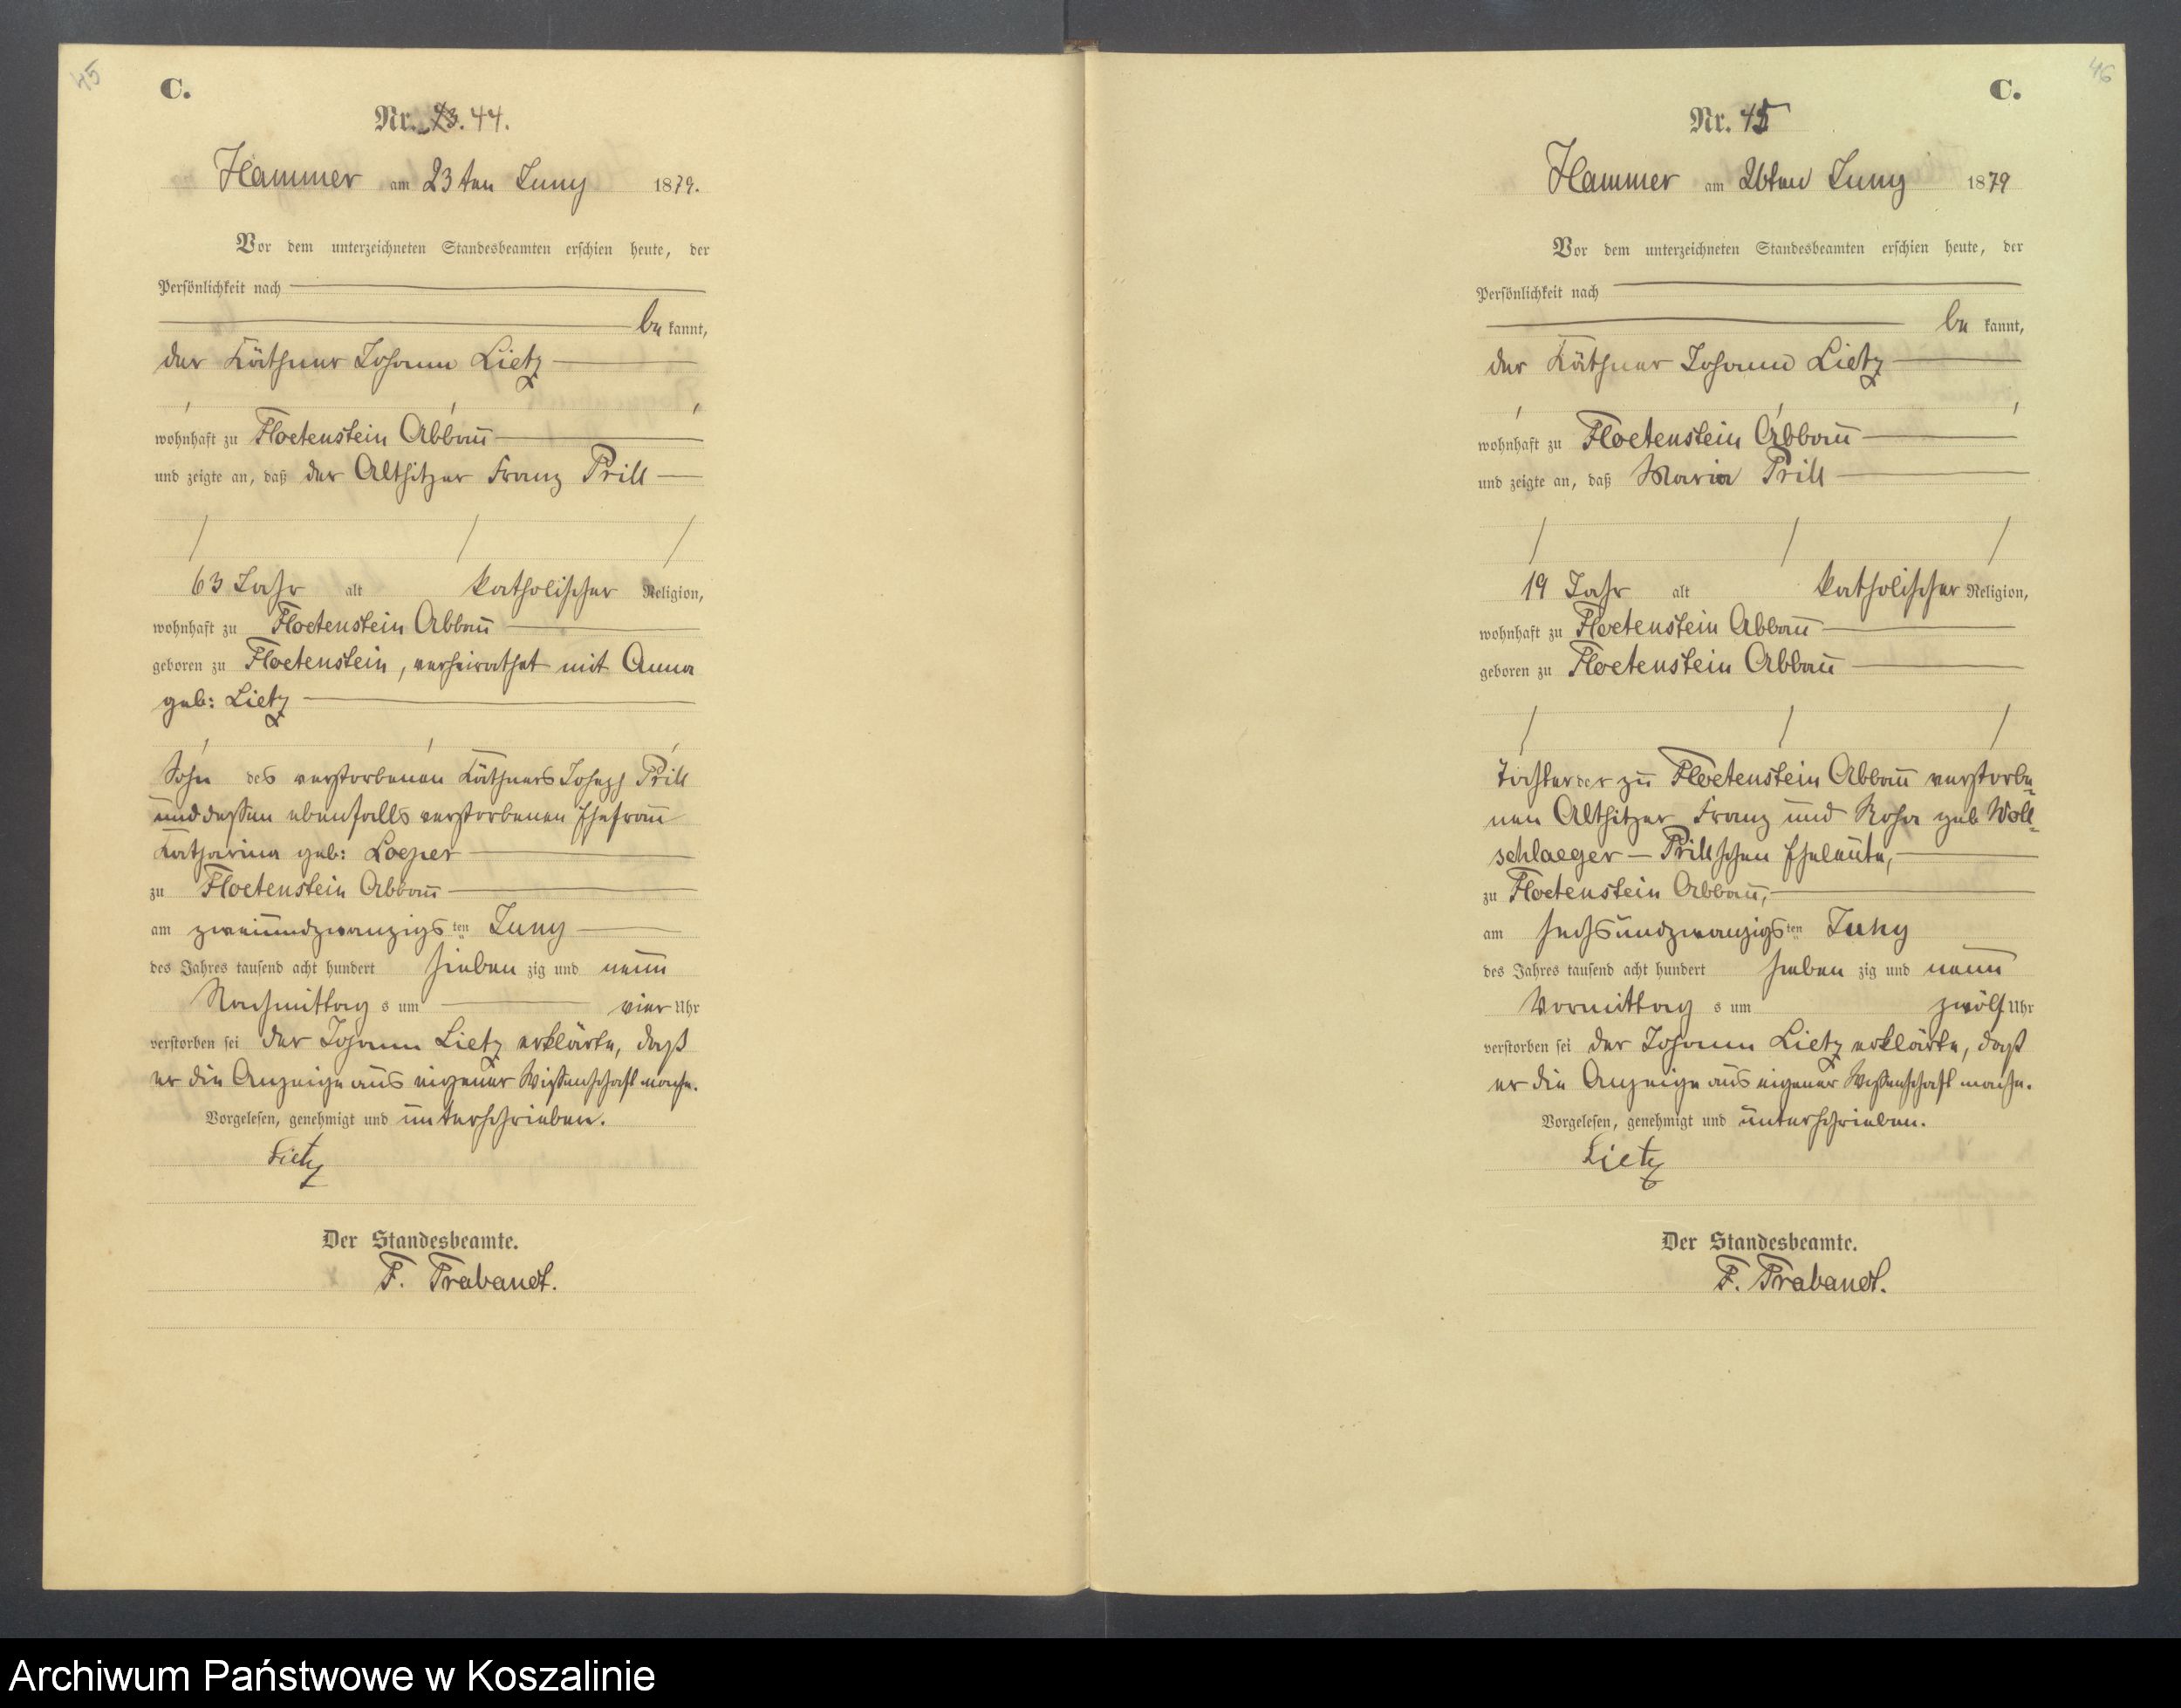 45
C.
Nr. 43. 44.
Hammer am 23ten Juny 1879.
Vor dem unterzeichneten Standesbeamten erschien heute, der
Persönlichkeit nach
be kannt,
der Käthner Johann Lietz
wohnhaft zu Floetenstein Abbau
und zeigte an, daß der Altsitzer Franz Prill
63 Jahr alt katholischer Religion,
wohnhaft zu Floetenstein Abbau
geboren zu Floetenstein, verheirathet mit Anna
geb: Lietz
Sohn des verstorbenen Käthners Joseph Prill
und dessen ebenfalls verstorbenen Ehefrau
Katharina geb: Loeper
zu Floetenstein Abbau
am zweiundzwanzigsten Juny
des Jahres tausend acht hundert sieben zig und neun
Nachmittag s um vier Uhr
verstorben sei der Johann Lietz erklärte, daß
er die Anzeige aus eigener Wissenschaft mache.
Vorgelesen, genehmigt und unterschrieben.
Lietz
Der Standesbeamte.
F. Trabandt.
46
C.
Nr. 45
Hammer am 26ten Juny 1879
Vor dem unterzeichneten Standesbeamten erschien heute, der
Persönlichkeit nach
be kannt,
der Käthner Johann Lietz
wohnhaft zu Floetenstein Abbau
und zeigte an, daß Maria Prill
19 Jahr alt katholischer Religion,
wohnhaft zu Floetenstein Abbau
geboren zu Floetenstein Abbau
Tochter der zu Floetenstein Abbau verstorbe-
nen Altsitzer Franz und Rosa geb Woll-
schlaeger - Prillschen Eheleute,
zu Floetenstein Abbau,
am sechsundzwanzigsten Juny
des Jahres tausend acht hundert sieben zig und neun
Vormittag s um zwölf Uhr
verstorben sei der Johann Lietz erklärte, daß
er die Anzeige aus eigener Wissenschaft mache.
Vorgelesen, genehmigt und unterschrieben.
Lietz
Der Standesbeamte.
F. Trabandt.
Archiwum Państwowe w Koszalinie